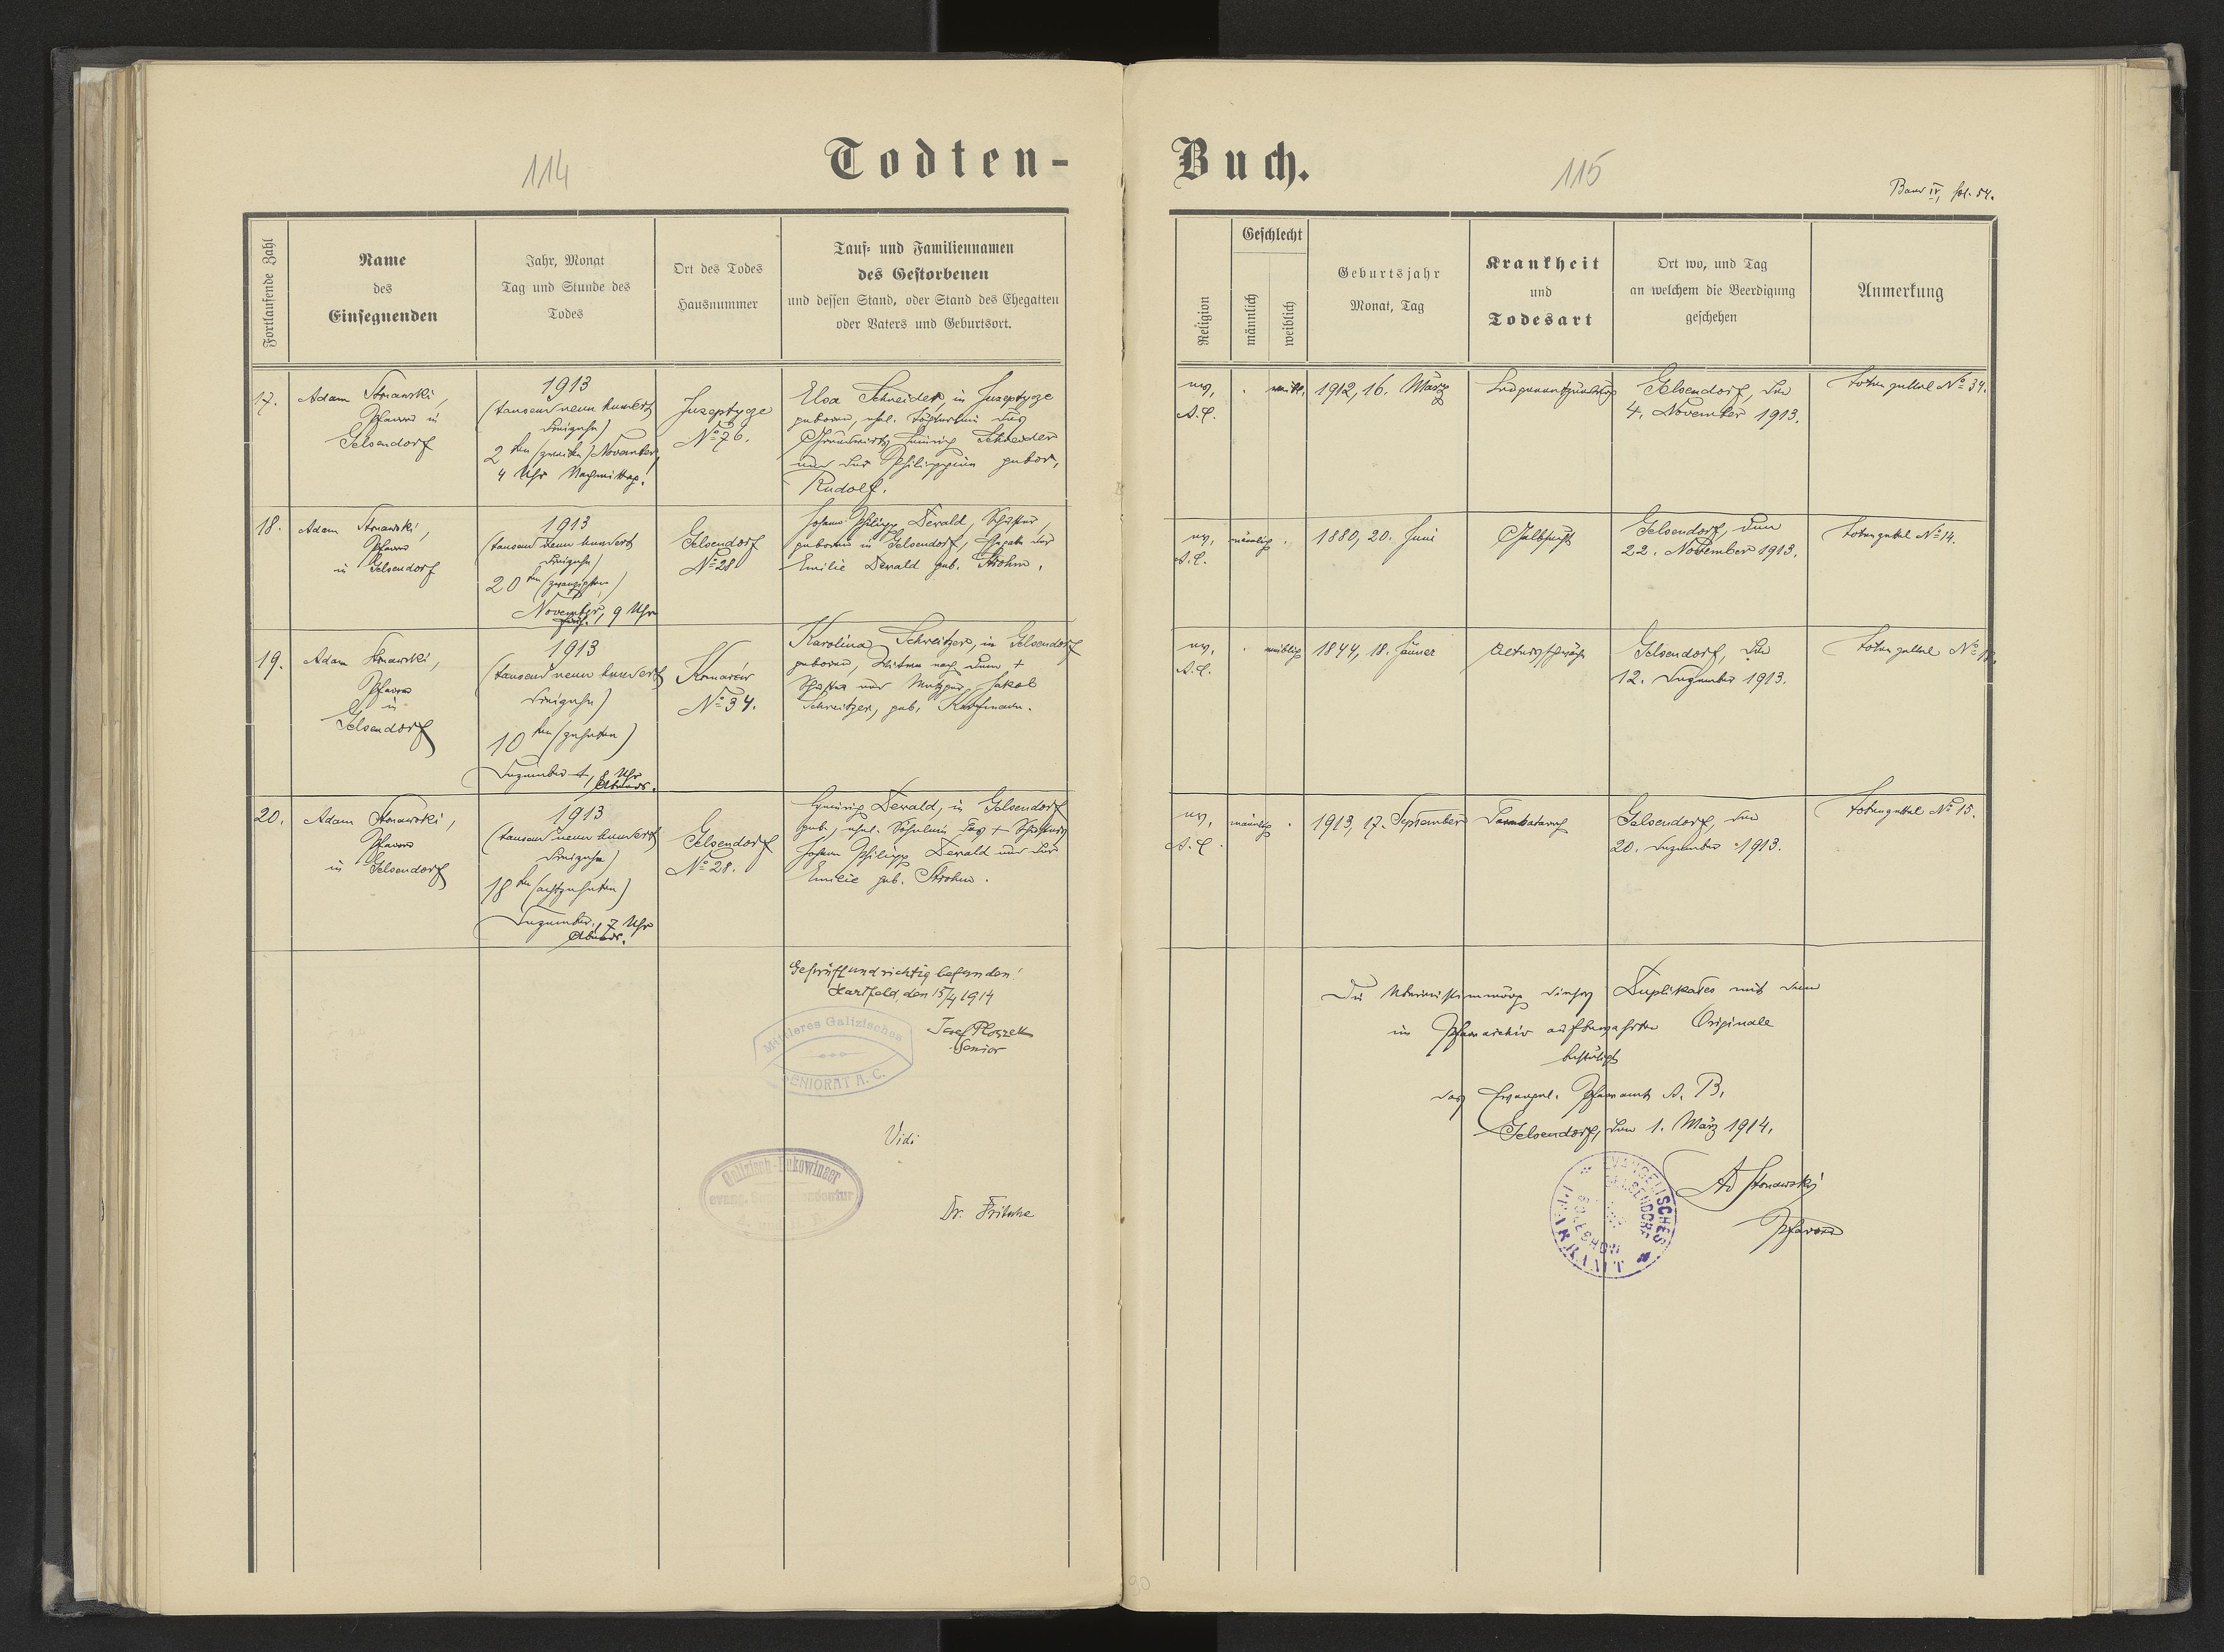 114
Todten-
Fortlaufende Zahl
Name
des
Einsegnenden
Jahr, Monat
Tag und Stunde des
Todes
Ort des Todes
Hausnummer
Tauf- und Familiennamen
des Gestorbenen
und dessen Stand, oder Stand des Ehegatten
oder Vaters und Geburtsort.
17.
Adam Stonawski,
Pfarrer in
Gelsendorf
1913
(tausend neun hundert
dreizehn)
2ten (zweiten) November,
4 Uhr Nachmittag.
Juseptycze
№ 76.
Elsa Schneider, in Juseptycze
geboren, ehel. Töchterlein des
Heinrich Schneider
und der Philippine gebor.
Rudolf.
18.
Adam Stonawski,
Pfarrer
in Gelsendorf
1913
(tausend neun hundert
dreizehn)
20ten (zwanzigsten)
November, 9 Uhr
früh.
Gelsendorf
№ 28
Johann Philipp Dewald, Schuster,
geboren in Gelsendorf, Ehegatte der
Emilie Dewald geb. Strohm.
19.
Adam Stonawski,
Pfarrer
in
Gelsendorf
1913
(tausend neun hundert
dreizehn)
10ten (zehnten)
Dezember, 8 Uhr
Abends.
Komarów
№ 34.
Karolina Schweitzer, in Gelsendorf
geboren, Witwe nach dem +
Schuster und Metzger Jakob
Schweitzer, geb. Kaufmann.
20.
Adam Stonawski,
Pfarrer
in Gelsendorf
1913
(tausend neun hundert
dreizehn)
18ten (achtzehnten)
Dezember, 7 Uhr
Abends.
Gelsendorf
№ 28.
Heinrich Dewald, in Gelsendorf
geb., ehel. Söhnlein des + Schusters
Johann Philipp Dewald und der
Emilie geb. Strohm.
Geprüft und richtig befunden!
Hartfeld, den 15/4 1914
Josef Ploszek
Senior
Mittleres Galizisches
SENIORAT A. C.
Vidi
Galizisch-Bukowinaer
evang. Superintendentur
Dr. Fritsche
Buch.
115
Band IV, fol. 54.
Religion
Geschlecht
männlich
weiblich
Geburtsjahr
Monat, Tag
Krankheit
und
Todesart
Ort wo, und Tag
an welchem die Beerdigung
geschehen
Anmerkung
ev.
A.C.
weibl.
1912, 16. März
Lungenentzündung
Gelsendorf, den
4. November 1913.
Totenzettel № 34.
ev.
A.C.
männlich
1880, 20. Juni
Gelbsucht
Gelsendorf, den
22. November 1913.
Totenzettel № 14.
ev.
A.C.
weiblich
1844, 18. Jänner
Altersschwäche
Gelsendorf, den
12. Dezember 1913.
Totenzettel №
ev.
A.C.
männlich
1913, 17. September
Darmkatarrh
Gelsendorf, den
20. Dezember 1913.
Totenzettel № 15.
Die Übereinstimmung dieses Duplikates mit dem
im Pfarrarchiv aufbewahrten Originale
bestätigt
das Evangel. Pfarramt A. B.
Gelsendorf, den 1. März 1914.
EVANGELISCHES
PFARRAMT
GELSENDORF
Ad Stonawski
Pfarrer
90